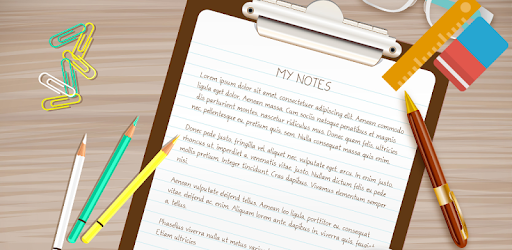 MY NOTES
Lorem ipsum dolor sit amet, consectetuer adipiscing elit. Aenean commodo
dis parturient montes, nascetur ridiculus mus. Cum sociis natoque penatibus et magnis
nec, pellentesque eu, pretium quis, sem. Nulla consequat massa quis enim.
Donec pede justo, fringilla vel, aliquet nec, vulputate eget, arcu. In enim justo,
rhoncus ut, imperdiet a, venenatis vitae, justo. Nullam dictum felis eu pede
mollis pretium. Integer tincidunt. Cras dapibus. Vivamus elementum semper
nisi.
Aenean vulputate eleifend tellus. Aenean leo ligula, porttitor eu, consequat
vitae, eleifend ac, enim. Aliquam lorem ante, dapibus in, viverra quis, feugiat
a, tellus.
Phasellus viverra nulla ut metus varius
Etiam ultricies